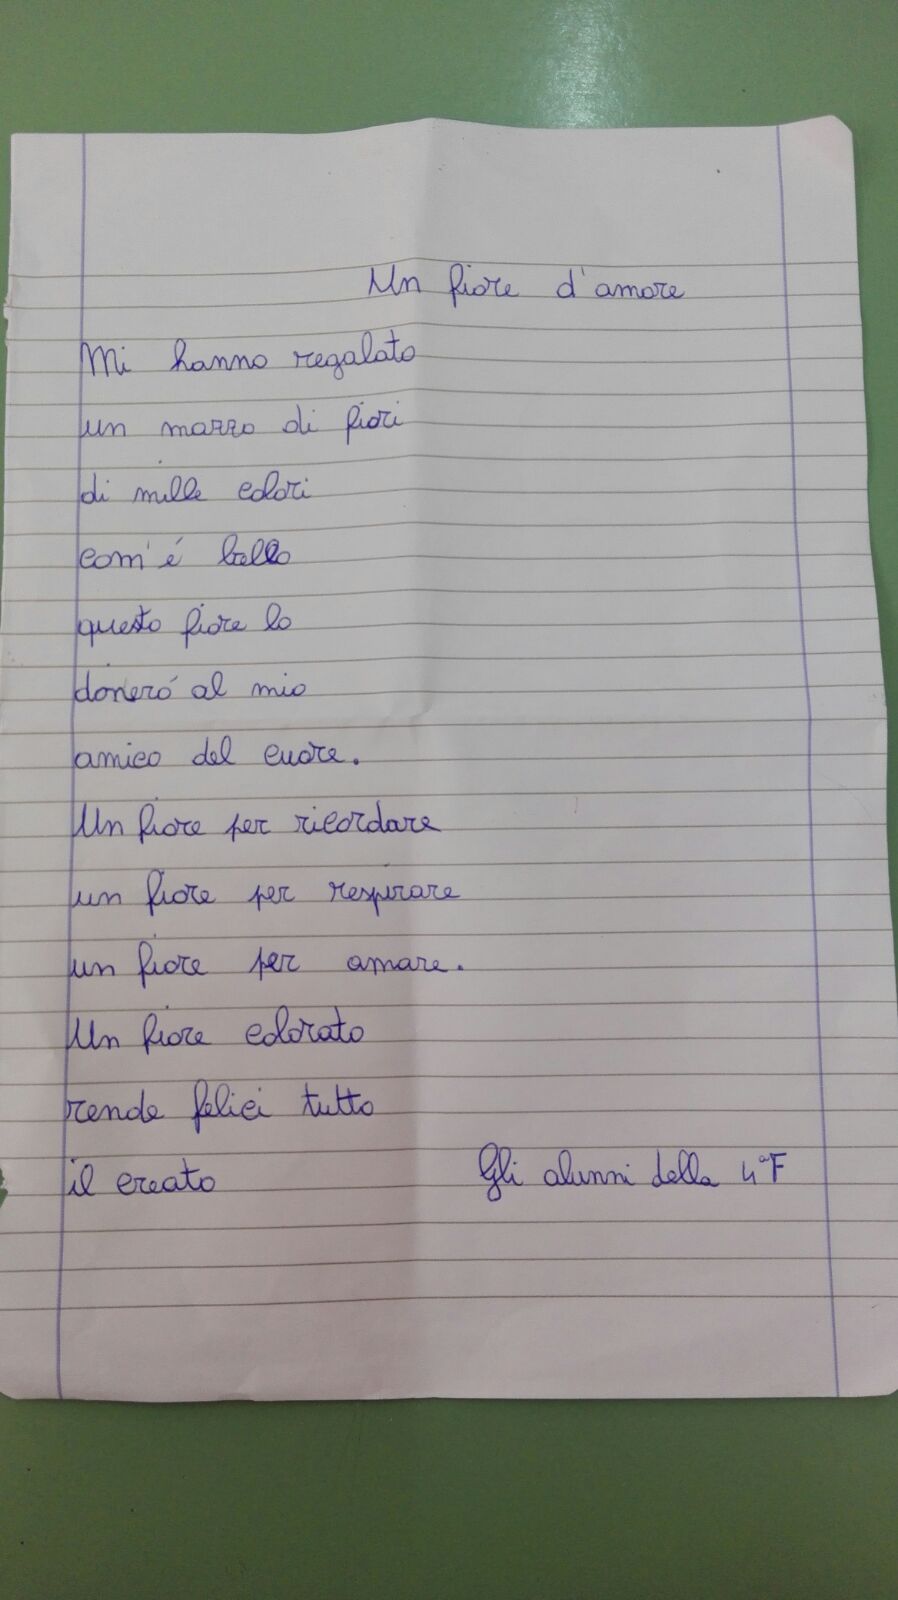 Un fiore d'amore
Mi hanno regalato
un mazzo di fiori
di mille colori
com'é bello
questo fiore lo
doneró al mio
amico del cuore.
Un fiore per ricordare
un fiore per respirare
un fiore per amare.
Un fiore colorato
rende felici tutto
il creato
Gli alunni della 4ªF